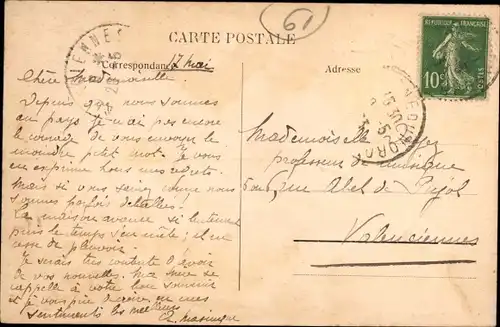 61
CARTE POSTALE
Correspondance
Adresse
RÉPUBLIQUE FRANÇAISE
10c
17 Mai
Chère Mademoiselle,
Depuis que nous sommes
au pays je n'ai pas encore
le courage de vous envoyer le
moindre petit mot. Je vous
en exprime tous mes regrets.
Mais si vous saviez comme nous
sommes parfois
La maison avance si lentement
puis le temps s'en mêle; il ne
cesse de pleuvoir.
Je serais très contente d'avoir
de vos nouvelles. se
rappelle à votre bon souvenir
et je vous prie de croire en mes
sentiments les meilleurs
Mademoiselle
professeur de musique
rue Abel de Pujol
Valenciennes